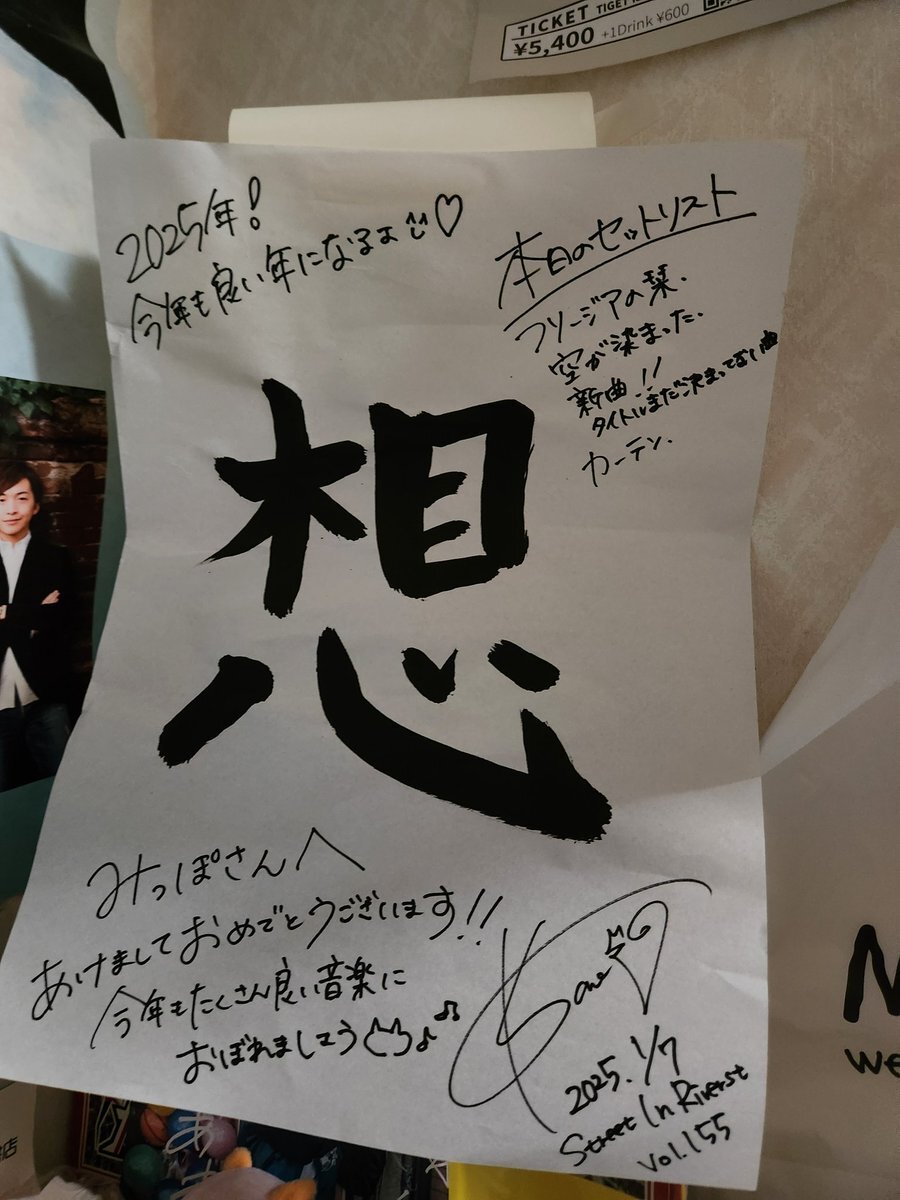 TICKET TIGET
¥5,400 +1Drink ¥600
2025年!
今年も良い年になるよ♡
本日のセットリスト
フリージアの栞.
空が染まった.
新曲!!
タイトルまだ決まってない曲
カーテン.
想
みっぽさんへ
あけましておめでとうございます!!
今年もたくさん良い音楽に
おぼれましょう♪♫
2025. 1/7
Street In Riverst
vol.155